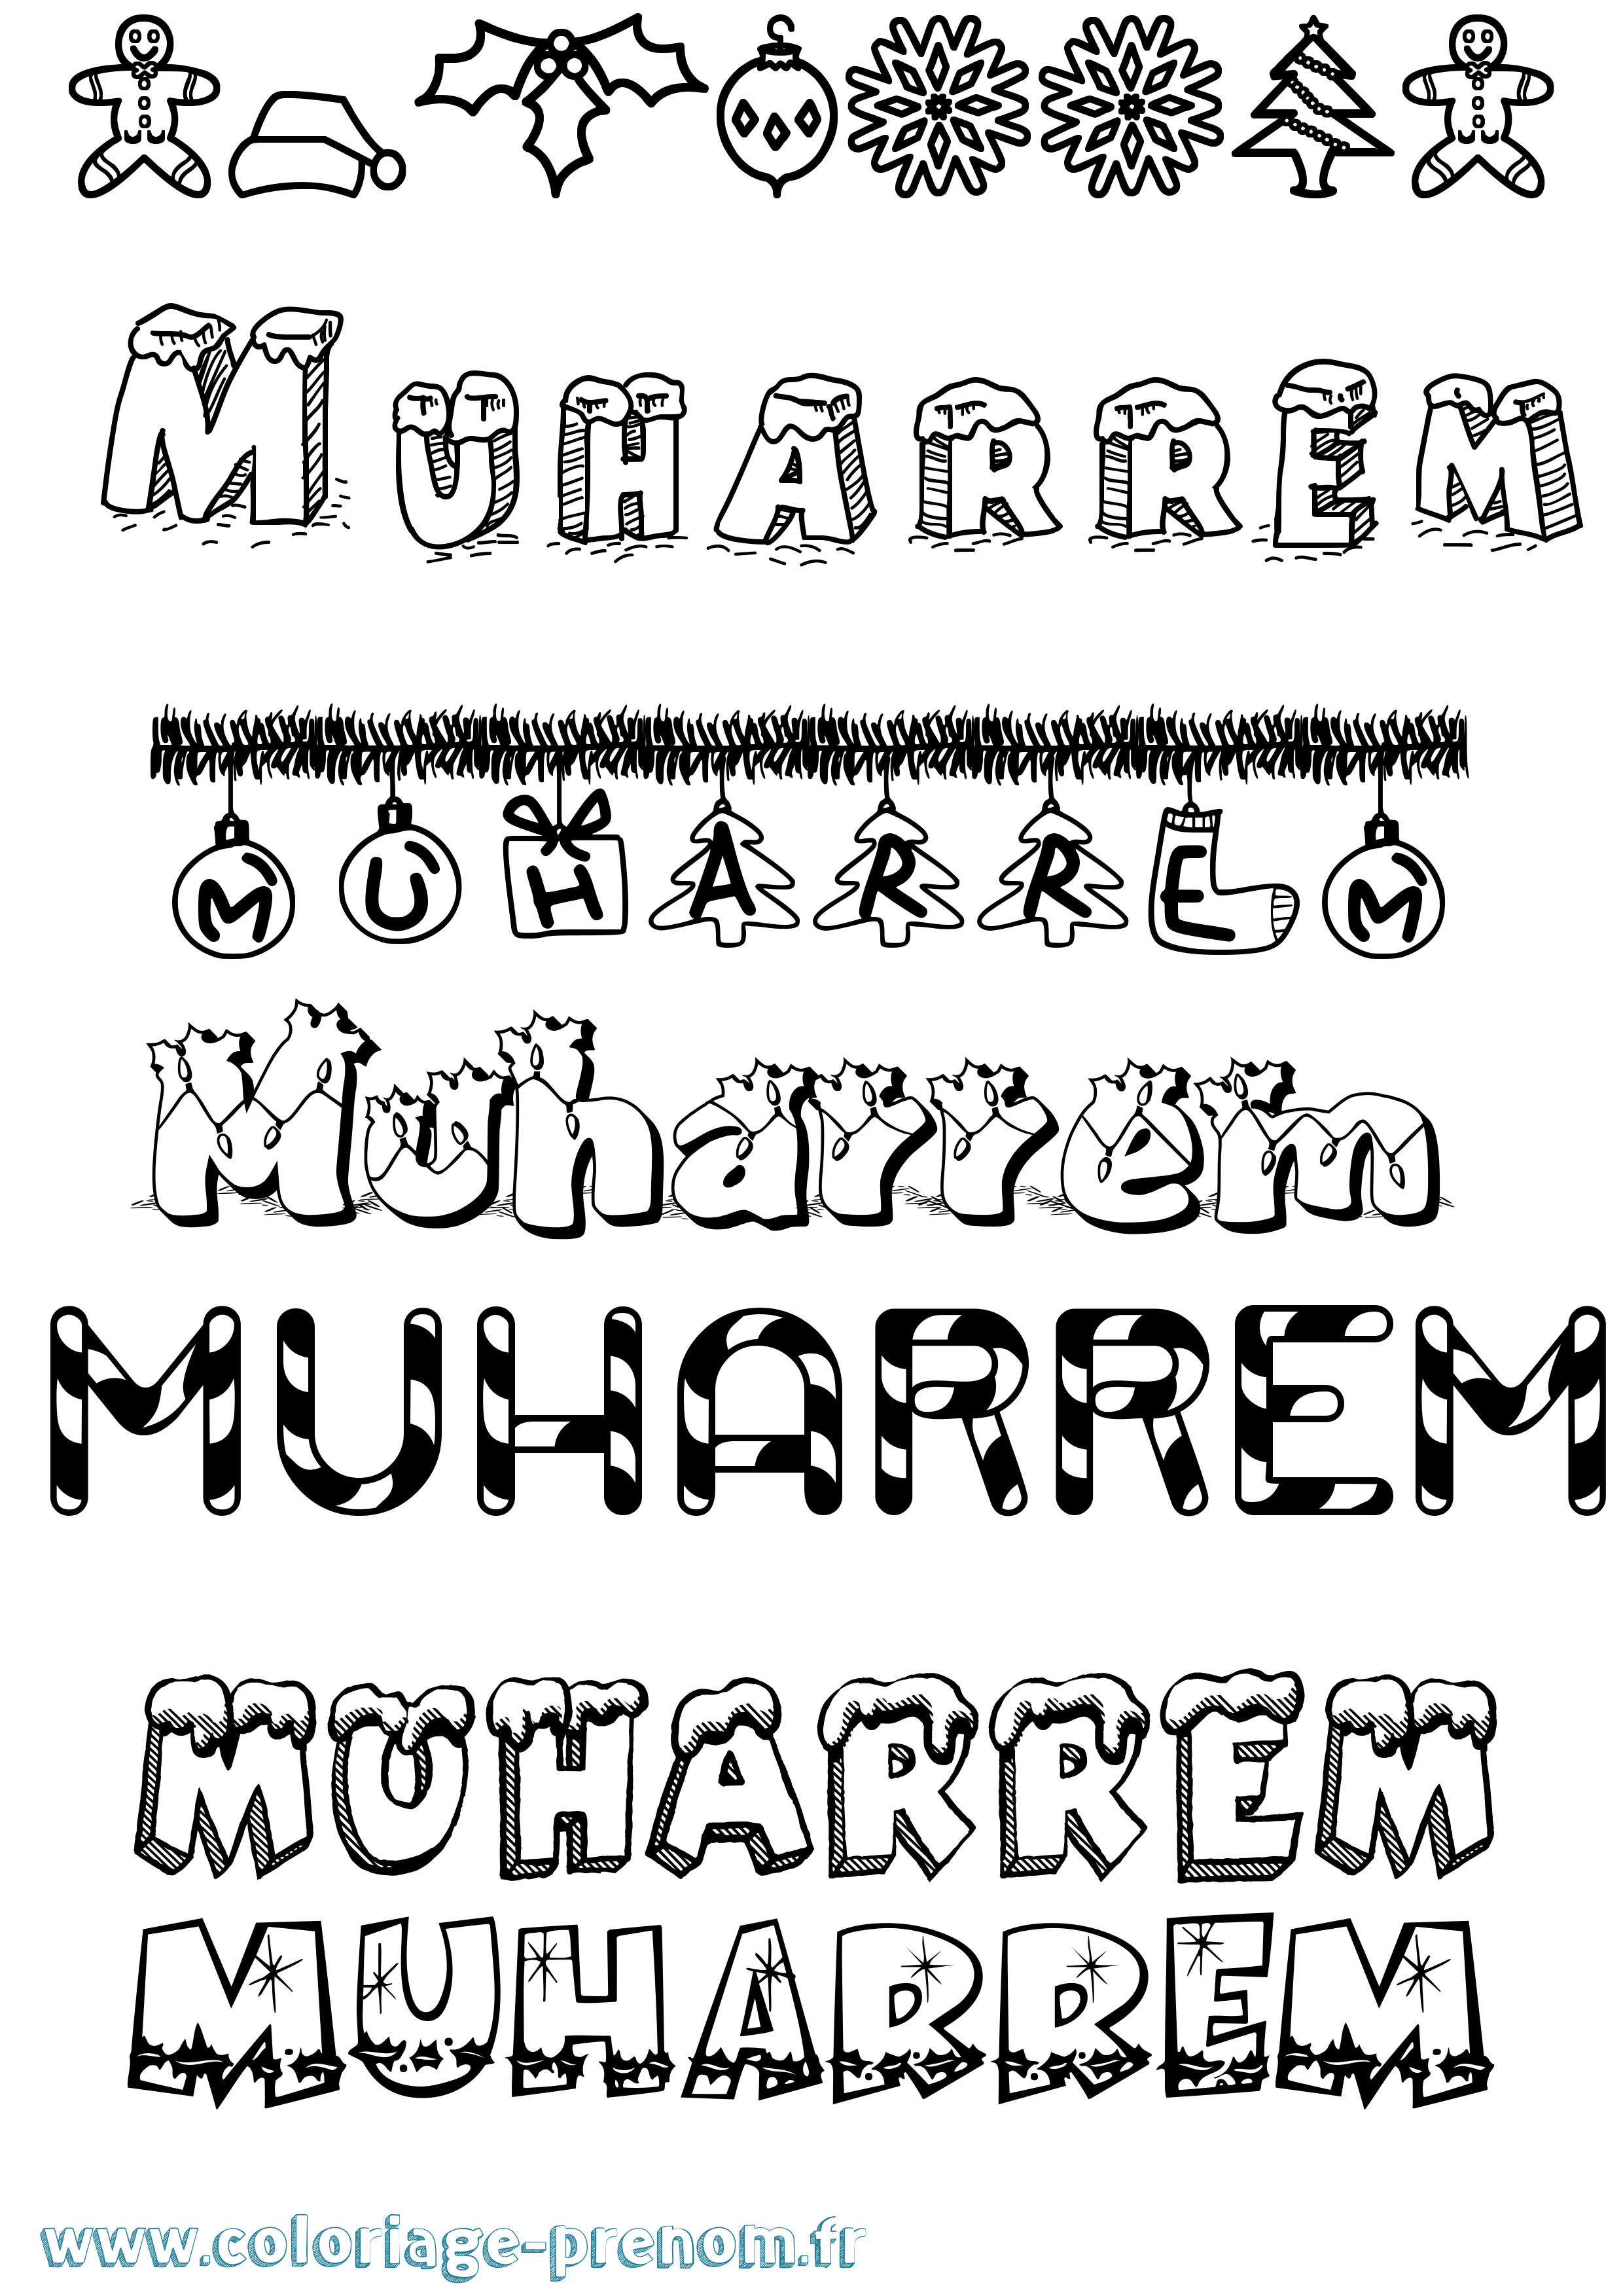 Muharrem
MUHARREM
Muharrem
MUHARREM
MUHARREM
MUHARREM
www.coloriage-prenom.fr